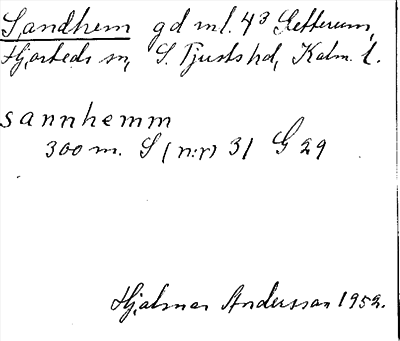 Sandhem gd ml. 4³ Getterum,
Hjorteds sn, S. Tjusts hd, Kalm. l.
sannhemm
300 m. S (n:r) 31 G 29
Hjalmar Andersson 1952.